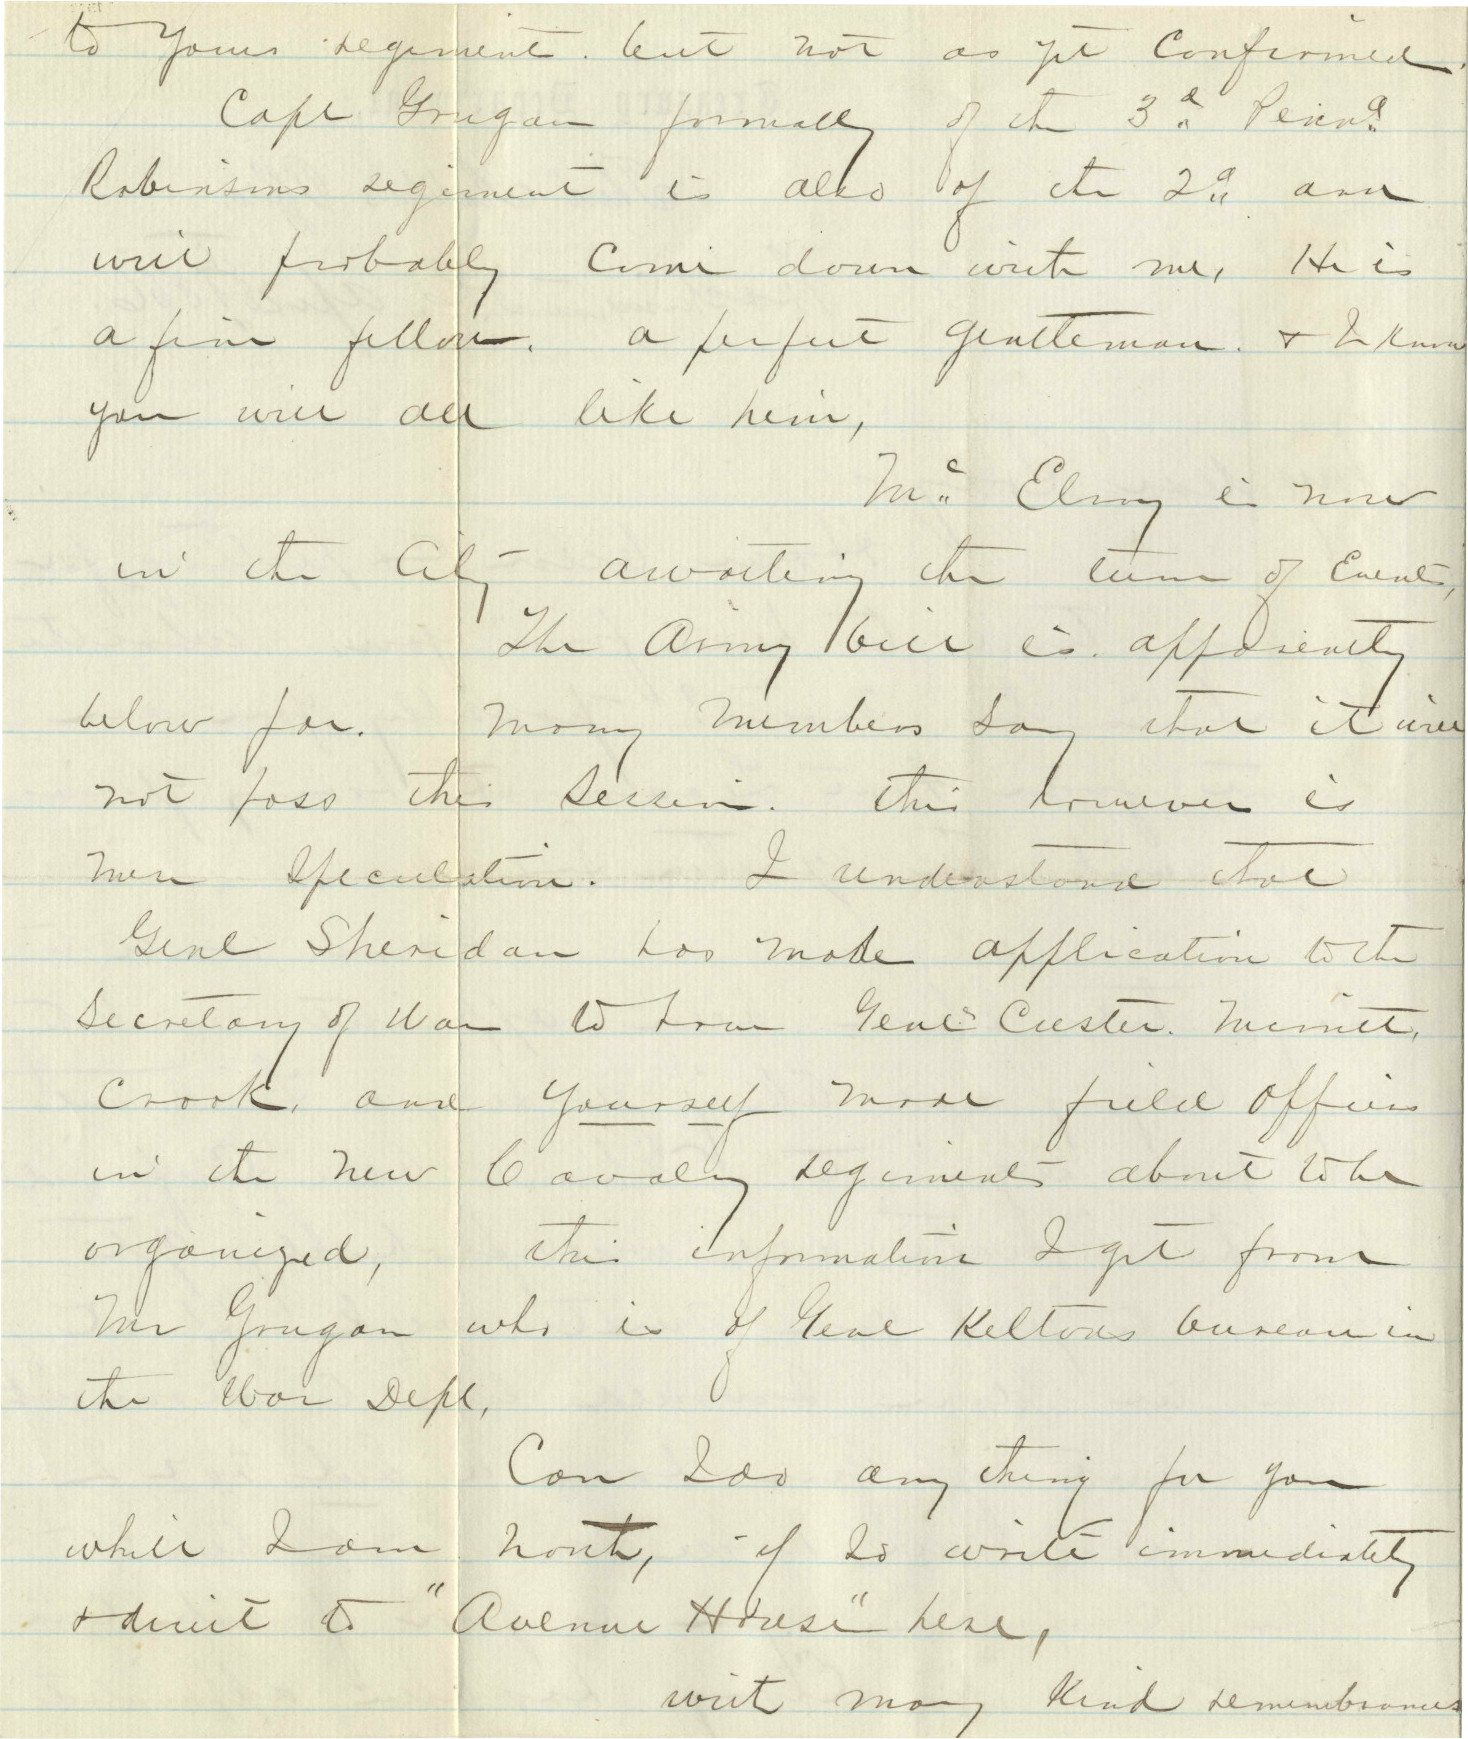 to Yours regiment. but not as yet Confirmed.
Capt Grugan formally of the 3d Penna
Robinsons regiment is also of the 2d and
will probably Come down with me, He is
a fine fellow. a perfect gentleman. & I know
you will all like him,
Mc Elroy is now
in the City awaiting the turn of Events,
The Army bill is apparently
below par. Many Members say that it will
not pass this Session. this however is
mere Speculation. I understand that
Genl Sheridan has made application to the
Secretary of War to have Genls Custer. Merritt,
Crook, and yourself made field Officers
in the new Cavalry regiments about to be
organized, this information I get from
Mr Grugan who is of Genl Keltons bureau in
the War Dept,
Can I do any thing for you
while I am North, if so write immediately
& direct to "Avenue House" here,
with many Kind remembrances